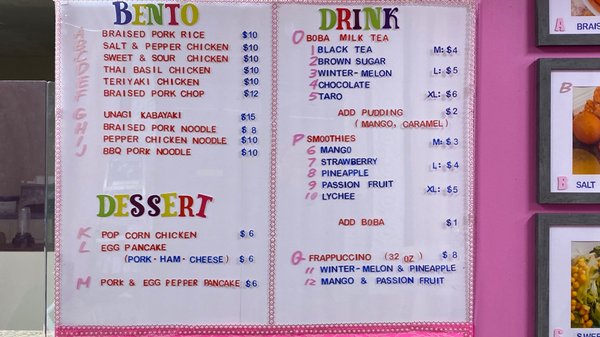 BENTO
A BRAISED PORK RICE $10
B SALT & PEPPER CHICKEN $10
C SWEET & SOUR CHICKEN $10
D THAI BASIL CHICKEN $10
E TERIYAKI CHICKEN $10
F BRAISED PORK CHOP $12
G UNAGI KABAYAKI $15
H BRAISED PORK NOODLE $ 8
I PEPPER CHICKEN NOODLE $10
J BBQ PORK NOODLE $10
DESSERT
K POP CORN CHICKEN $ 6
L EGG PANCAKE
(PORK-HAM-CHEESE) $ 6
M PORK & EGG PEPPER PANCAKE $6
DRINK
O BOBA MILK TEA
1 BLACK TEA M: $4
2 BROWN SUGAR
3 WINTER-MELON L: $5
4 CHOCOLATE
5 TARO XL: $6
ADD PUDDING $2
(MANGO, CARAMEL)
P SMOOTHIES
6 MANGO M: $3
7 STRAWBERRY
8 PINEAPPLE L: $4
9 PASSION FRUIT
10 LYCHEE XL: $5
ADD BOBA $1
G FRAPPUCCINO (32 OZ) $8
11 WINTER-MELON & PINEAPPLE
12 MANGO & PASSION FRUIT
A
BRAIS
B
B
SALT
SWEE